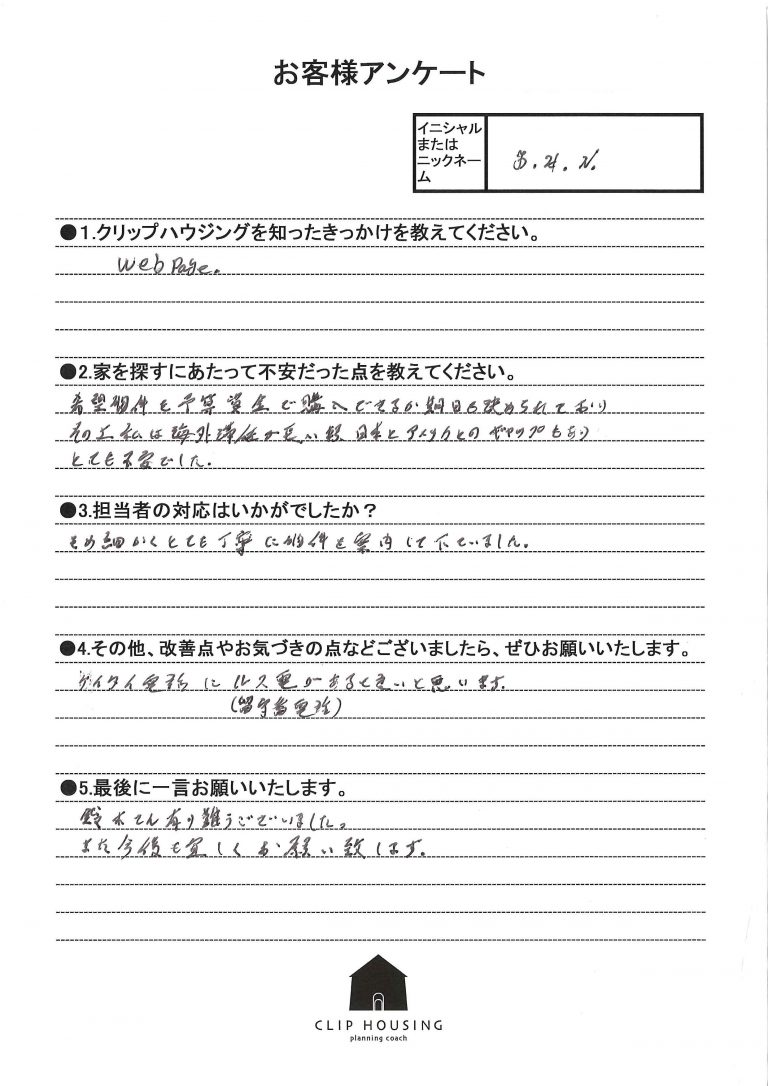 お客様アンケート
イニシャル
または
ニックネー
ム
●1.クリップハウジングを知ったきっかけを教えてください。
Web Page.
●2.家を探すにあたって不安だった点を教えてください。
希望物件を予算資金で購入できるか期日も決められており
その上私は海外滞在が長い為日本とアメリカとのギャップもあり
とても不安でした.
●3.担当者の対応はいかがでしたか？
きめ細かくとても丁寧に物件を案内して下さいました.
●4.その他、改善点やお気づきの点などございましたら、ぜひお願いいたします。
ケイタイ電話にルス電があると良いと思います.
(留守番電話)
●5.最後に一言お願いいたします。
鈴木さん有り難うございました。
また今後も宜しくお願い致します.
CLIP HOUSING
planning coach